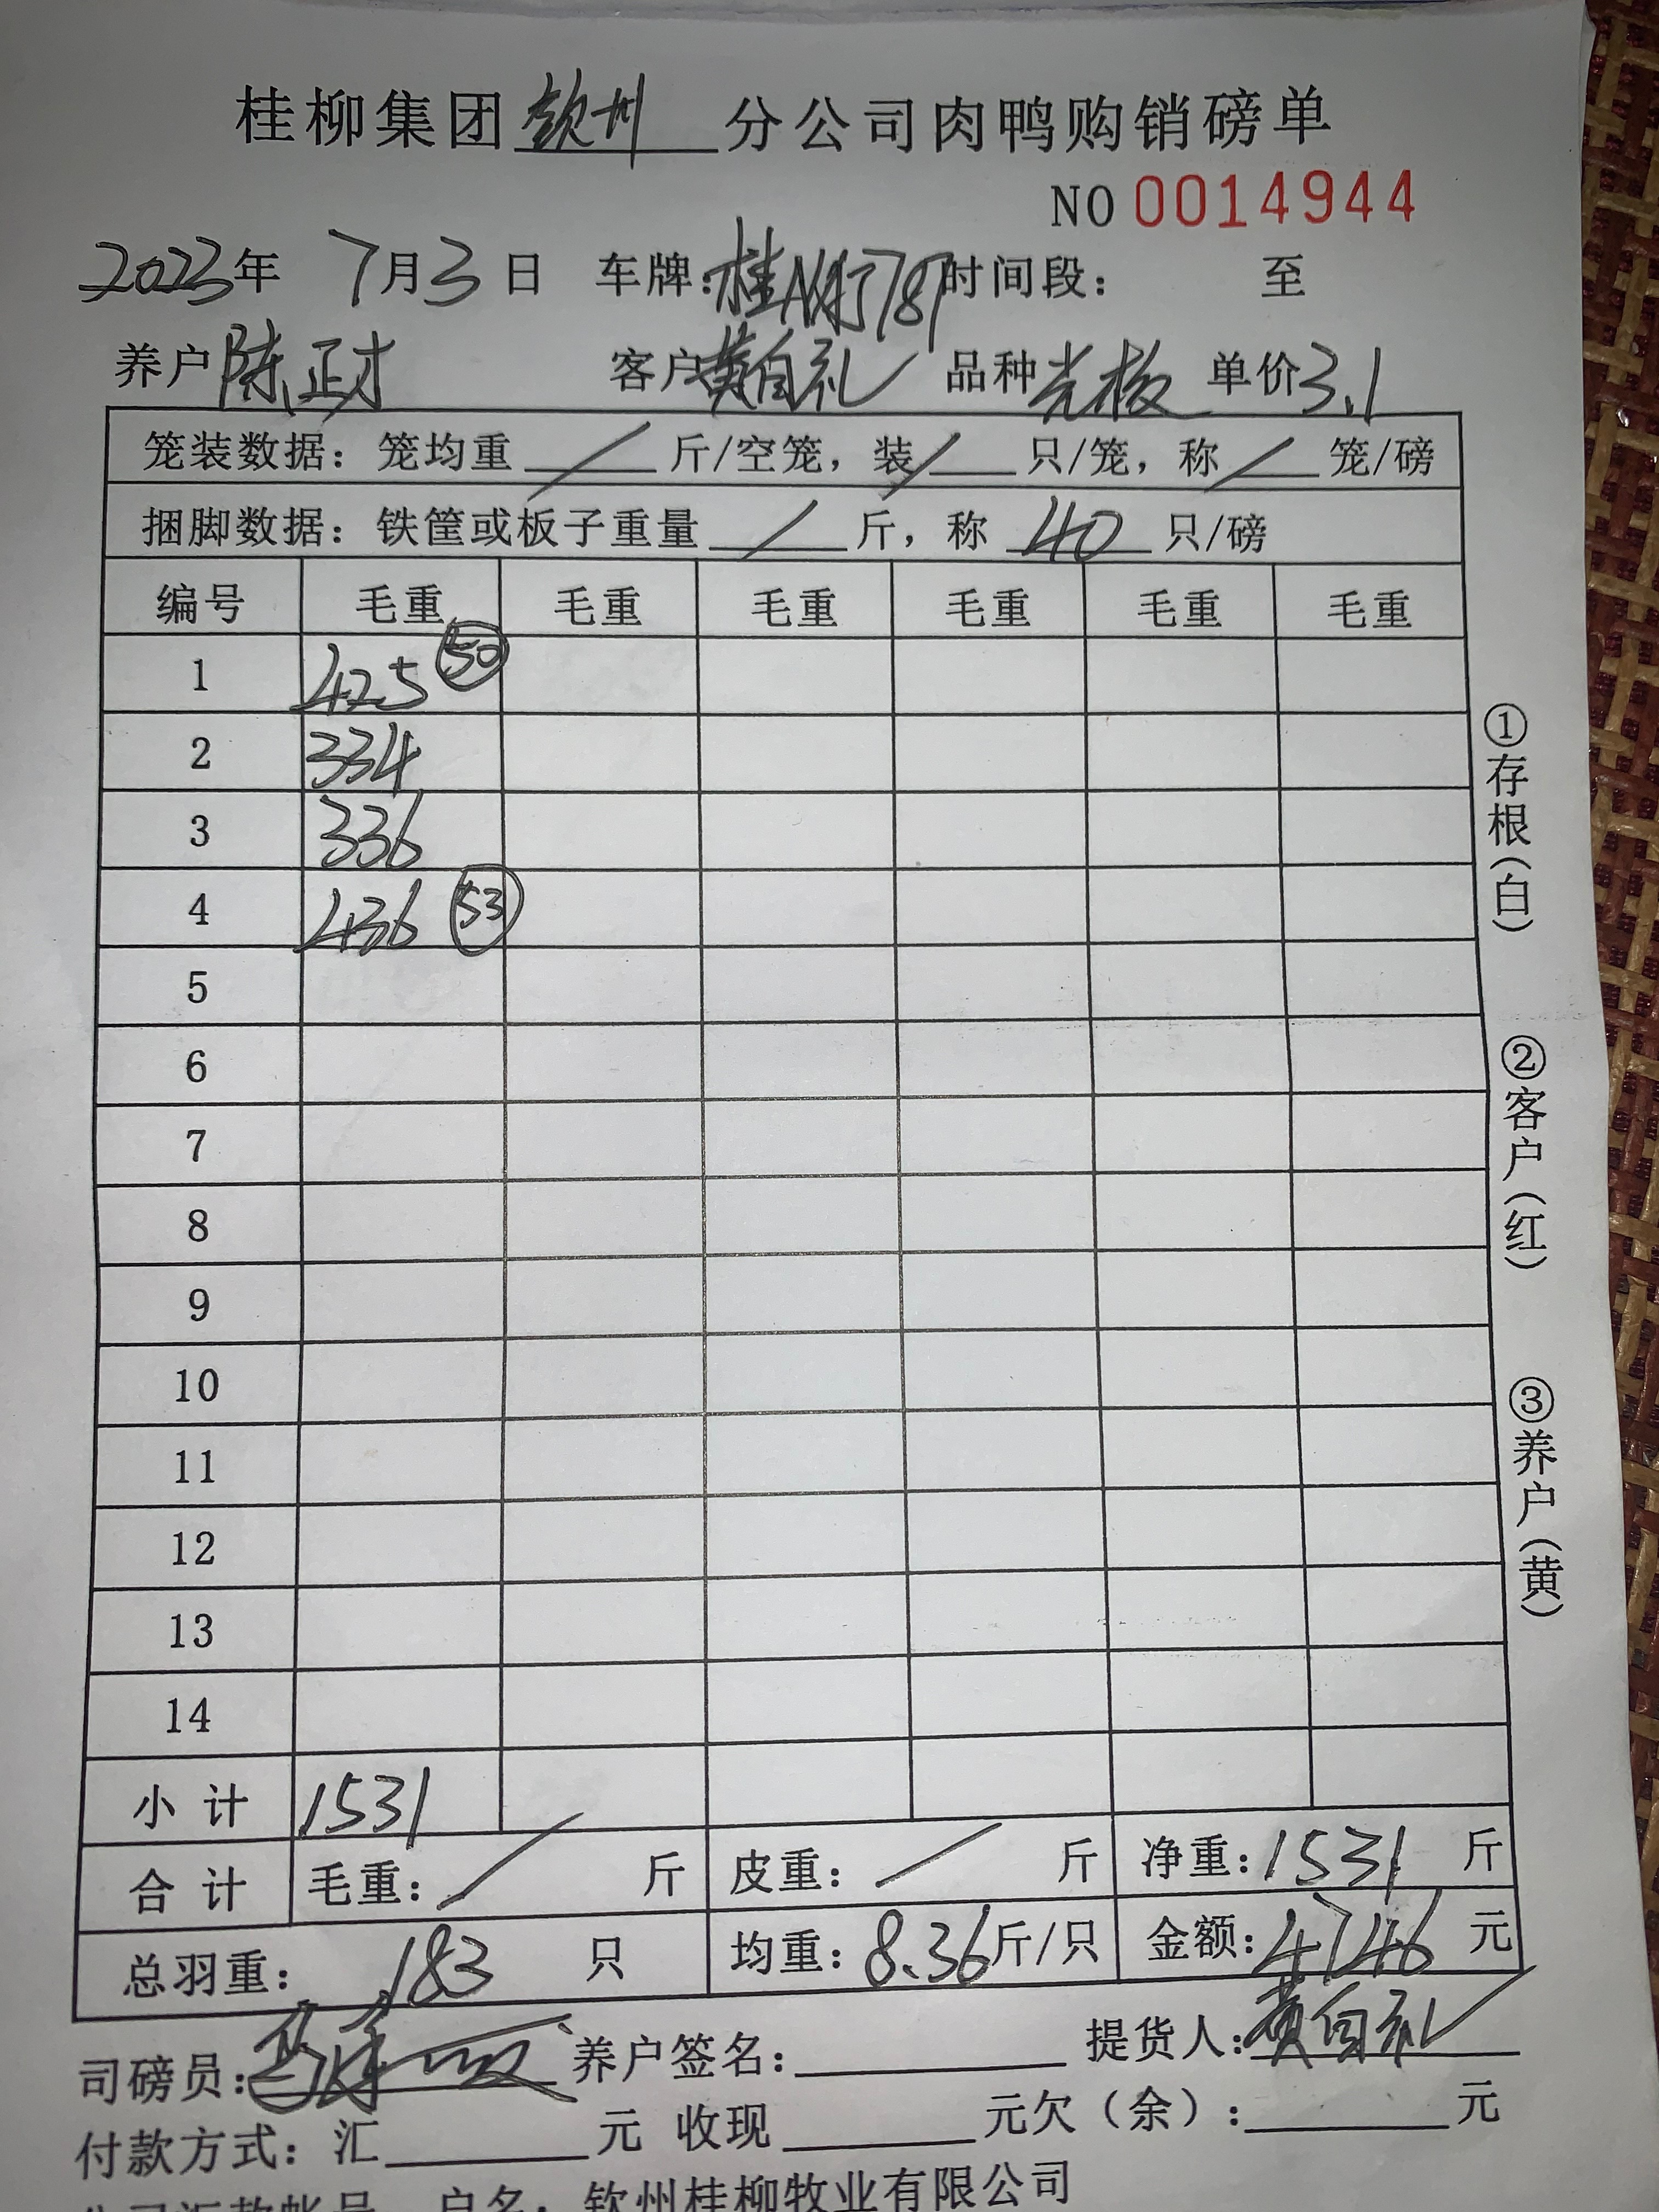 桂柳集团钦州分公司肉鸭购销磅单
NO 0014944
2023年 7月3日 车牌：桂 时间段： 至
养户陈正才 客户黄自礼 品种光板 单价3.1
笼装数据：笼均重 / 斤/空笼，装 / 只/笼，称 / 笼/磅
捆脚数据：铁筐或板子重量 / 斤，称 40 只/磅
编号 毛重 毛重 毛重 毛重 毛重 毛重
1 425 50
2 334
3 336
4 436 53
5
6
7
8
9
10
11
12
13
14
小计 1531
合计 毛重： / 斤 皮重： / 斤 净重：1531 斤
总羽重： 183 只 均重：8.36斤/只 金额：4746 元
司磅员： 养户签名： 提货人：黄自礼
付款方式：汇 元 收现 元欠（余）： 元
户名：钦州桂柳牧业有限公司
①存根（白）
②客户（红）
③养户（黄）